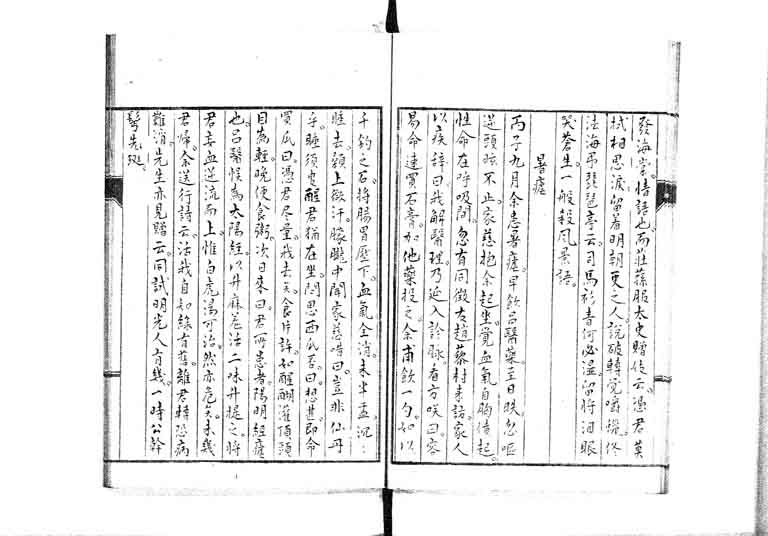 發海棠情語也而莊蓀服太史贈伎云憑君莫
拭相思淚留着明朝更送人說破轉覺嚼蠟佟
法海弔琵琶亭云司馬衫青何必濕留將淚眼
哭蒼生一般殺風景語
暑瘧
丙子九月余患暑瘧早飲呂醫藥至日昳忽嘔
逆頭眩不止家慈抱余起坐覺血氣自胸僨起
性命在呼吸間忽有同徵友趙藜村來訪家人
以疾辭曰我解醫理乃延入診脉看方笑曰容
易命速買石膏加他藥投之余甫飲一勺如以
千鈞之石將腸胃壓下血氣全消未半盂沉沉
睡去顙上微汗朦朧中聞家慈唶曰豈非仙丹
乎睡須臾醒君猶在坐問思西瓜否曰想甚即命
買瓜曰憑君盡量我去矣食片許如醍醐灌頂頭
目為輕晚便食粥次日來曰君所患者陽明經瘧
也呂醫悞為太陽經以升麻羌活二味升提之將
君妄血逆流而上惟白虎湯可治然亦危矣未幾
君歸余送行詩云活我自知緣有舊離君轉恐病
難消先生亦見贈云同試明光人有幾一時公幹
鬢先斑